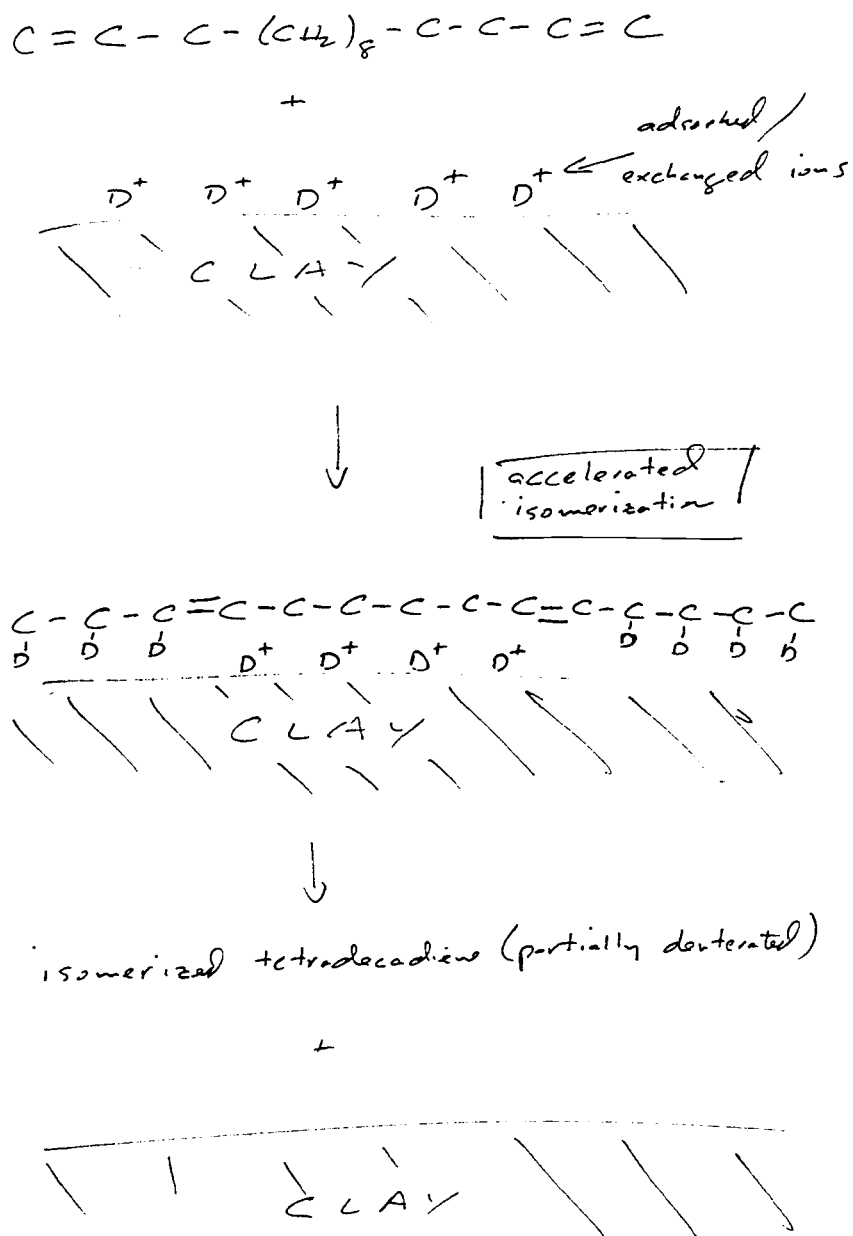 C = C - C - (CH₂)₈ - C - C - C = C
+
adsorbed/
exchanged ions
D⁺ D⁺ D⁺ D⁺ D⁺
CLAY
accelerated
isomerization
C - C - C = C - C - C - C - C - C = C - C - C - C - C
D D D D⁺ D⁺ D⁺ D⁺ D D D D
CLAY
isomerized tetradecadiene (partially deuterated)
+
CLAY